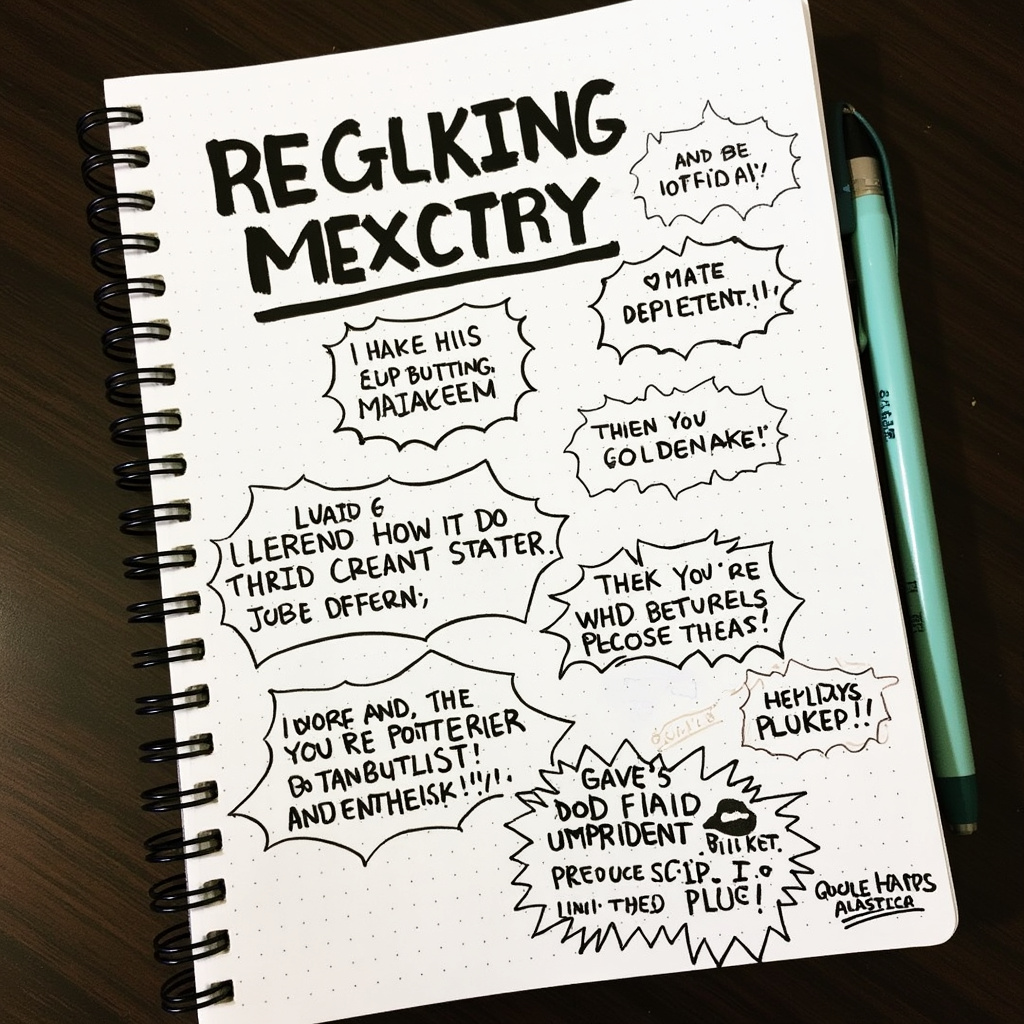 REGLKING
MEXCTRY
AND BE
IOTFID A!!
♡ MATE
DEPIETENT.!!,
I HAKE HIIS
EUP BUTTING.
MAIAKEEM
THIEN YOU
GOLDENAKE!
LUAID 6
LLEREND HOW IT DO
THRID CREANT STATER.
JUBE DFFERN;,
THEK YOU'RE
WHD BETURELS
PLCOSE THEAS!
HEPLIXYS
PLUKEP!!
I WORF AND, THE
YOU'RE POTTERIER
BOTANBUTLIST!
ANDENTHEISK!!!/!.
GAVE'S
DOD FIAID
UMPRIDENT
.BIIIKET.
PREOUCE SC·IP. I.o
UNII·THED PLUC!
QOULE HAPPS
ALASTICR